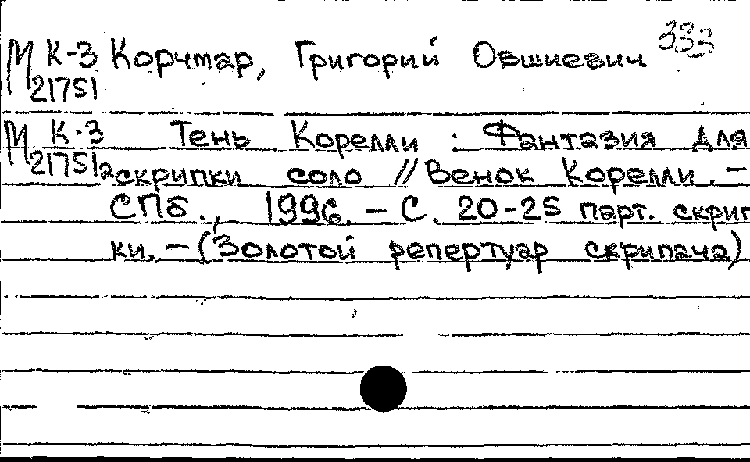 М К-3 Корчмар, Григорий Овшиевич 333
21751
М К-3 Тень Корелли : Фантазия для
21751а скрипки соло // Венок Корелли. –
СПб., 1996. – С. 20-25 парт. скрип
ки. – (Золотой репертуар скрипача)